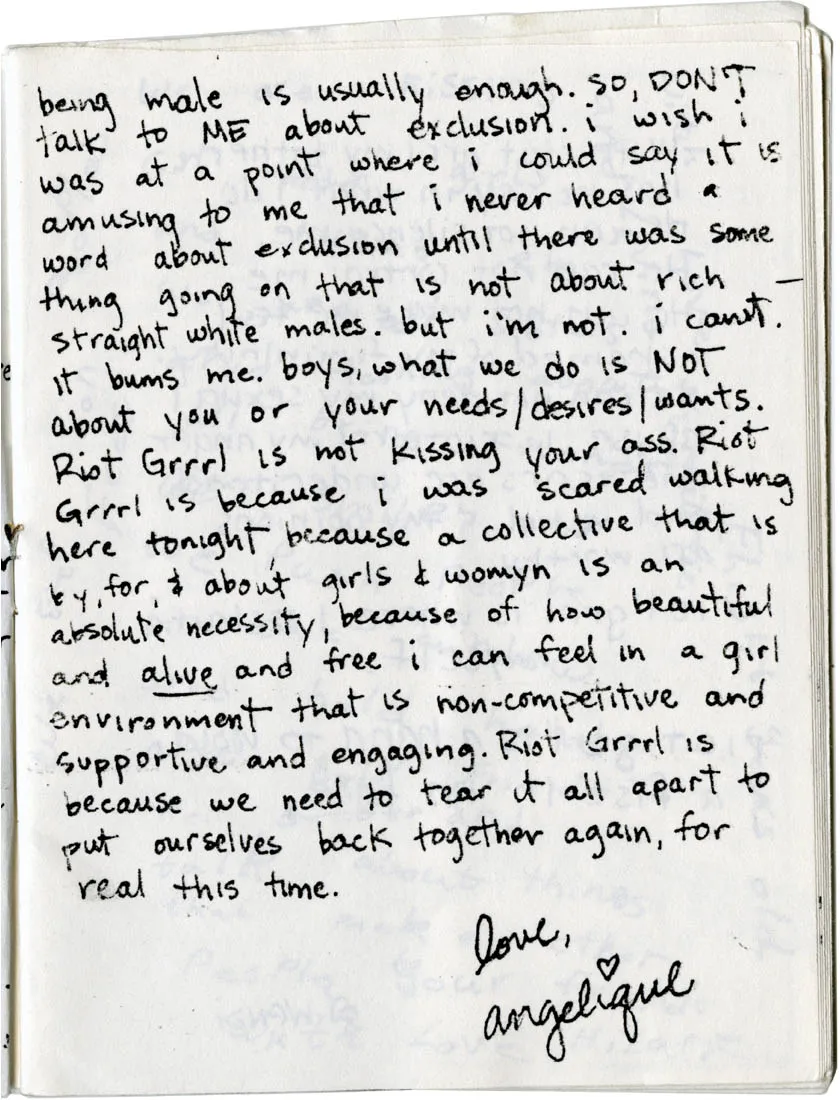 being male is usually enough. SO, DON'T
talk to ME about exclusion. i wish i
was at a point where i could say it is
amusing to me that i never heard a
word about exclusion until there was some
thing going on that is not about rich —
straight white males. but i'm not. i can't.
it bums me. boys, what we do is NOT
about you or your needs/desires/wants.
Riot Grrrl is not kissing your ass. Riot
Grrrl is because i was scared walking
here tonight, because a collective that is
by, for, & about girls & womyn is an
absolute necessity, because of how beautiful
and alive and free i can feel in a girl
environment that is non-competitive and
supportive and engaging. Riot Grrrl is
because we need to tear it all apart to
put ourselves back together again, for
real this time.
love,
angelique